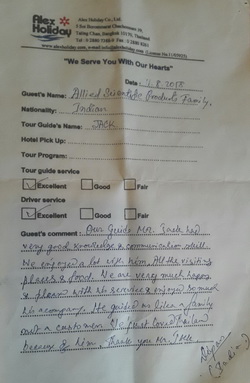 Alex Holiday
Alex Holiday Co., Ltd.
"We Serve You With Our Hearts"
Date: 7.8.2018
Guest's Name: Allied Scientific Products Family.
Nationality: Indian
Tour Guide's Name: JACK
Hotel Pick Up:
Tour Program:
Tour guide service
Excellent Good Fair
Driver service
Excellent Good Fair
Guest's comment: Our Guide Mr. Jack had
very good knowledge & communication skill.
We enjoyed a lot with him, All the visiting
places & food. We are very much happy
& pleased with his service & enjoyed so much
his accompany. He guided us like a family
not a customer. We just loved Thailand
because of him. Thank you Mr. Jack.
(India)